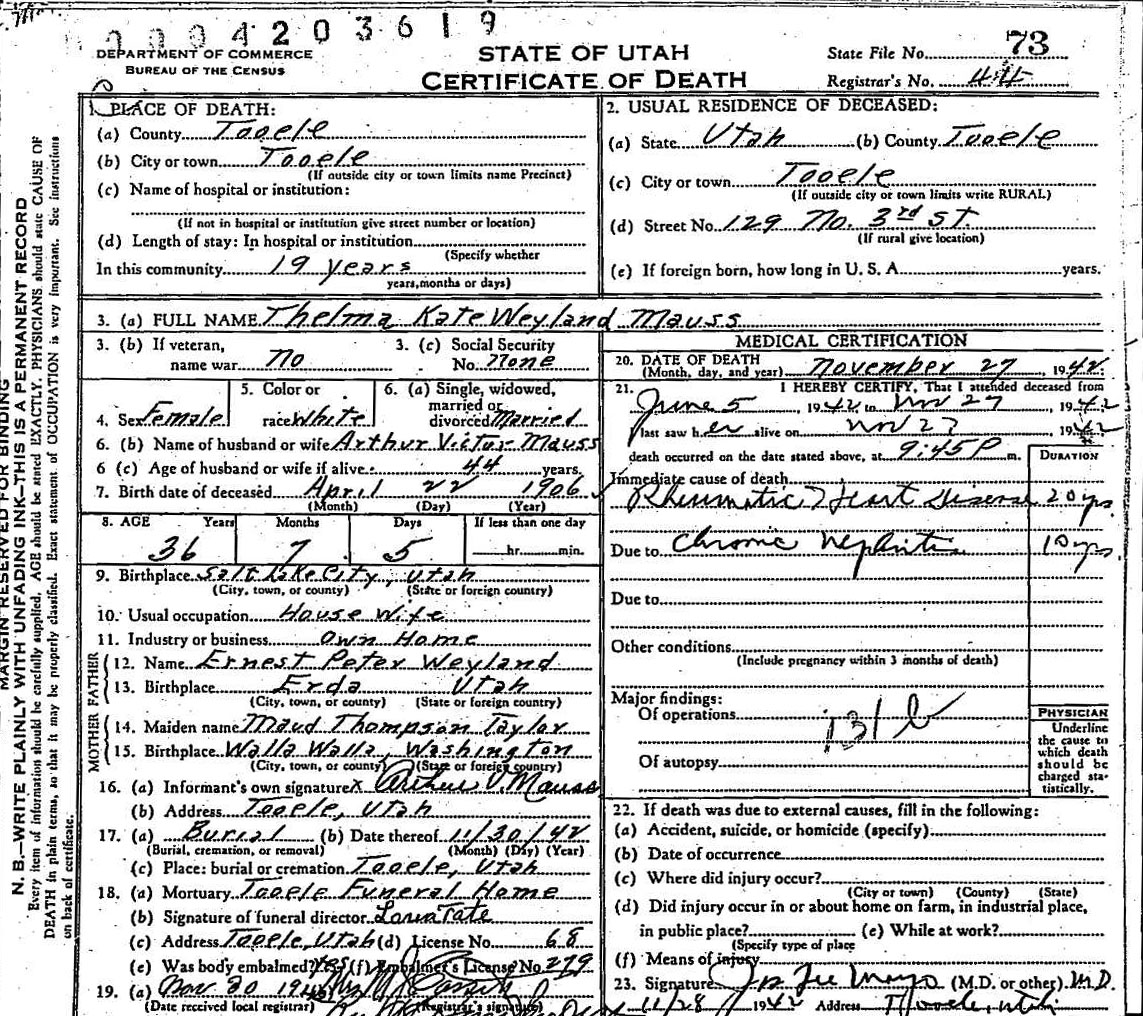 0004203619
DEPARTMENT OF COMMERCE
BUREAU OF THE CENSUS
STATE OF UTAH
CERTIFICATE OF DEATH
State File No. 73
Registrar's No. 44
1. PLACE OF DEATH:
(a) County Tooele
(b) City or town Tooele
(If outside city or town limits name Precinct)
(c) Name of hospital or institution:
(If not in hospital or institution give street number or location)
(d) Length of stay: In hospital or institution
(Specify whether
In this community 19 years
years, months or days)
2. USUAL RESIDENCE OF DECEASED:
(a) State Utah (b) County Tooele
(c) City or town Tooele
(If outside city or town limits write RURAL)
(d) Street No. 129 No. 3rd St.
(If rural give location)
(e) If foreign born, how long in U. S. A. years.
3. (a) FULL NAME Thelma Kate Weyland Mauss
3. (b) If veteran, 3. (c) Social Security
name war No No. None
4. Sex Female
5. Color or
race White
6. (a) Single, widowed,
married or
divorced Married
6. (b) Name of husband or wife Arthur Victor Mauss
6 (c) Age of husband or wife if alive 44 years.
7. Birth date of deceased April 22 1906
(Month) (Day) (Year)
8. AGE Years Months Days If less than one day
36 7 5 hr. min.
9. Birthplace Salt Lake City, Utah
(City, town, or county) (State or foreign country)
10. Usual occupation House Wife
11. Industry or business Own Home
FATHER
12. Name Ernest Peter Weyland
13. Birthplace Erda Utah
(City, town, or county) (State or foreign country)
MOTHER
14. Maiden name Maud Thompson Taylor
15. Birthplace Walla Walla, Washington
(City, town, or county) (State or foreign country)
16. (a) Informant's own signature X Arthur V. Mauss
(b) Address Tooele, Utah
17. (a) Burial (b) Date thereof 11/30/42
(Burial, cremation, or removal) (Month) (Day) (Year)
(c) Place: burial or cremation Tooele, Utah
18. (a) Mortuary Tooele Funeral Home
(b) Signature of funeral director Loren Tate
(c) Address Tooele, Utah (d) License No. 68
(e) Was body embalmed? Yes (f) Embalmer's License No. 279
19. (a) Nov. 30 194
(Date received local registrar) (Registrar's signature)
MEDICAL CERTIFICATION
20. DATE OF DEATH
(Month, day, and year) November 27, 1942
21. I HEREBY CERTIFY, That I attended deceased from
June 5, 1942 to Nov 27, 1942
I last saw her alive on Nov 27, 1942
death occurred on the date stated above, at 9:45 P m.
DURATION
Immediate cause of death
Rheumatic Heart Disease 20 yrs.
Due to Chronic Nephritis 10 yrs.
Due to
Other conditions
(Include pregnancy within 3 months of death)
Major findings:
Of operations 131 b
Of autopsy
PHYSICIAN
Underline
the cause to
which death
should be
charged sta-
tistically.
22. If death was due to external causes, fill in the following:
(a) Accident, suicide, or homicide (specify)
(b) Date of occurrence
(c) Where did injury occur?
(City or town) (County) (State)
(d) Did injury occur in or about home on farm, in industrial place,
in public place? (e) While at work?
(Specify type of place
(f) Means of injury
23. Signature (M.D. or other) M.D.
11/28 1942 Address Tooele, Utah
MARGIN RESERVED FOR BINDING
N. B.—WRITE PLAINLY WITH UNFADING INK—THIS IS A PERMANENT RECORD
Every item of information should be carefully supplied. AGE should be stated EXACTLY. PHYSICIANS should state CAUSE OF
DEATH in plain terms, so that it may be properly classified. Exact statement of OCCUPATION is very important. See instructions
on back of certificate.